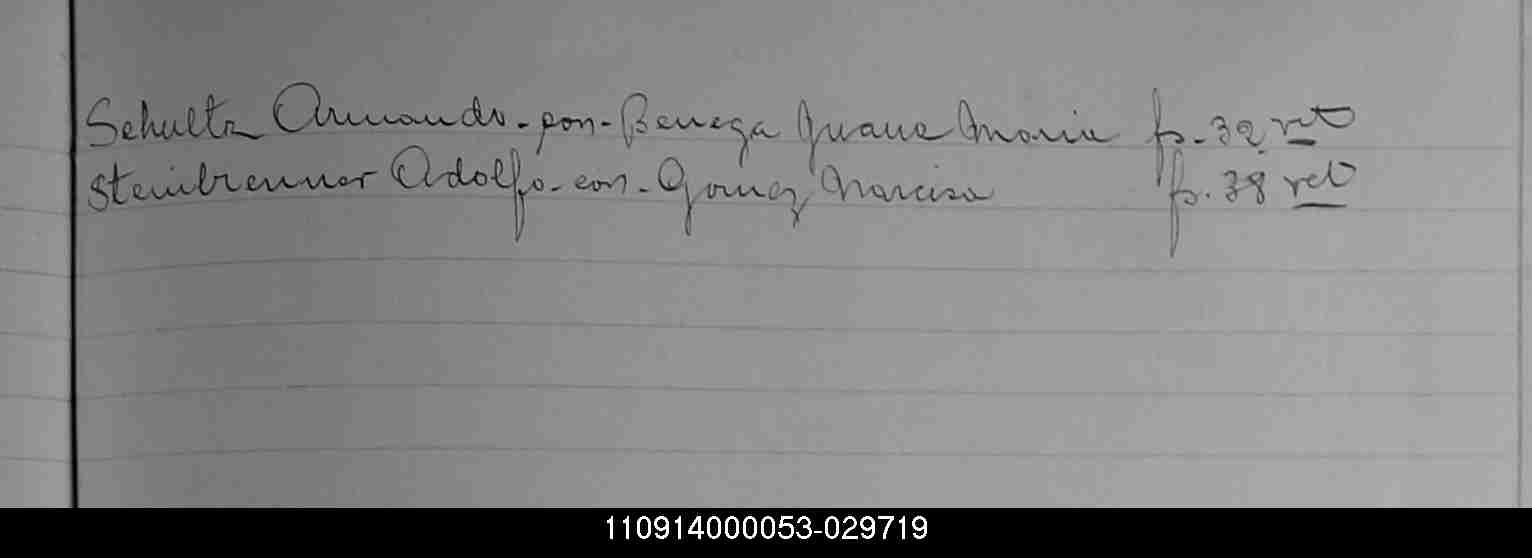 Schultz Armando - con - Benega Juana Maria fs. 32 vto
Steinbrenner Adolfo - con - Gomez Narcisa fs. 38 vto
110914000053-029719